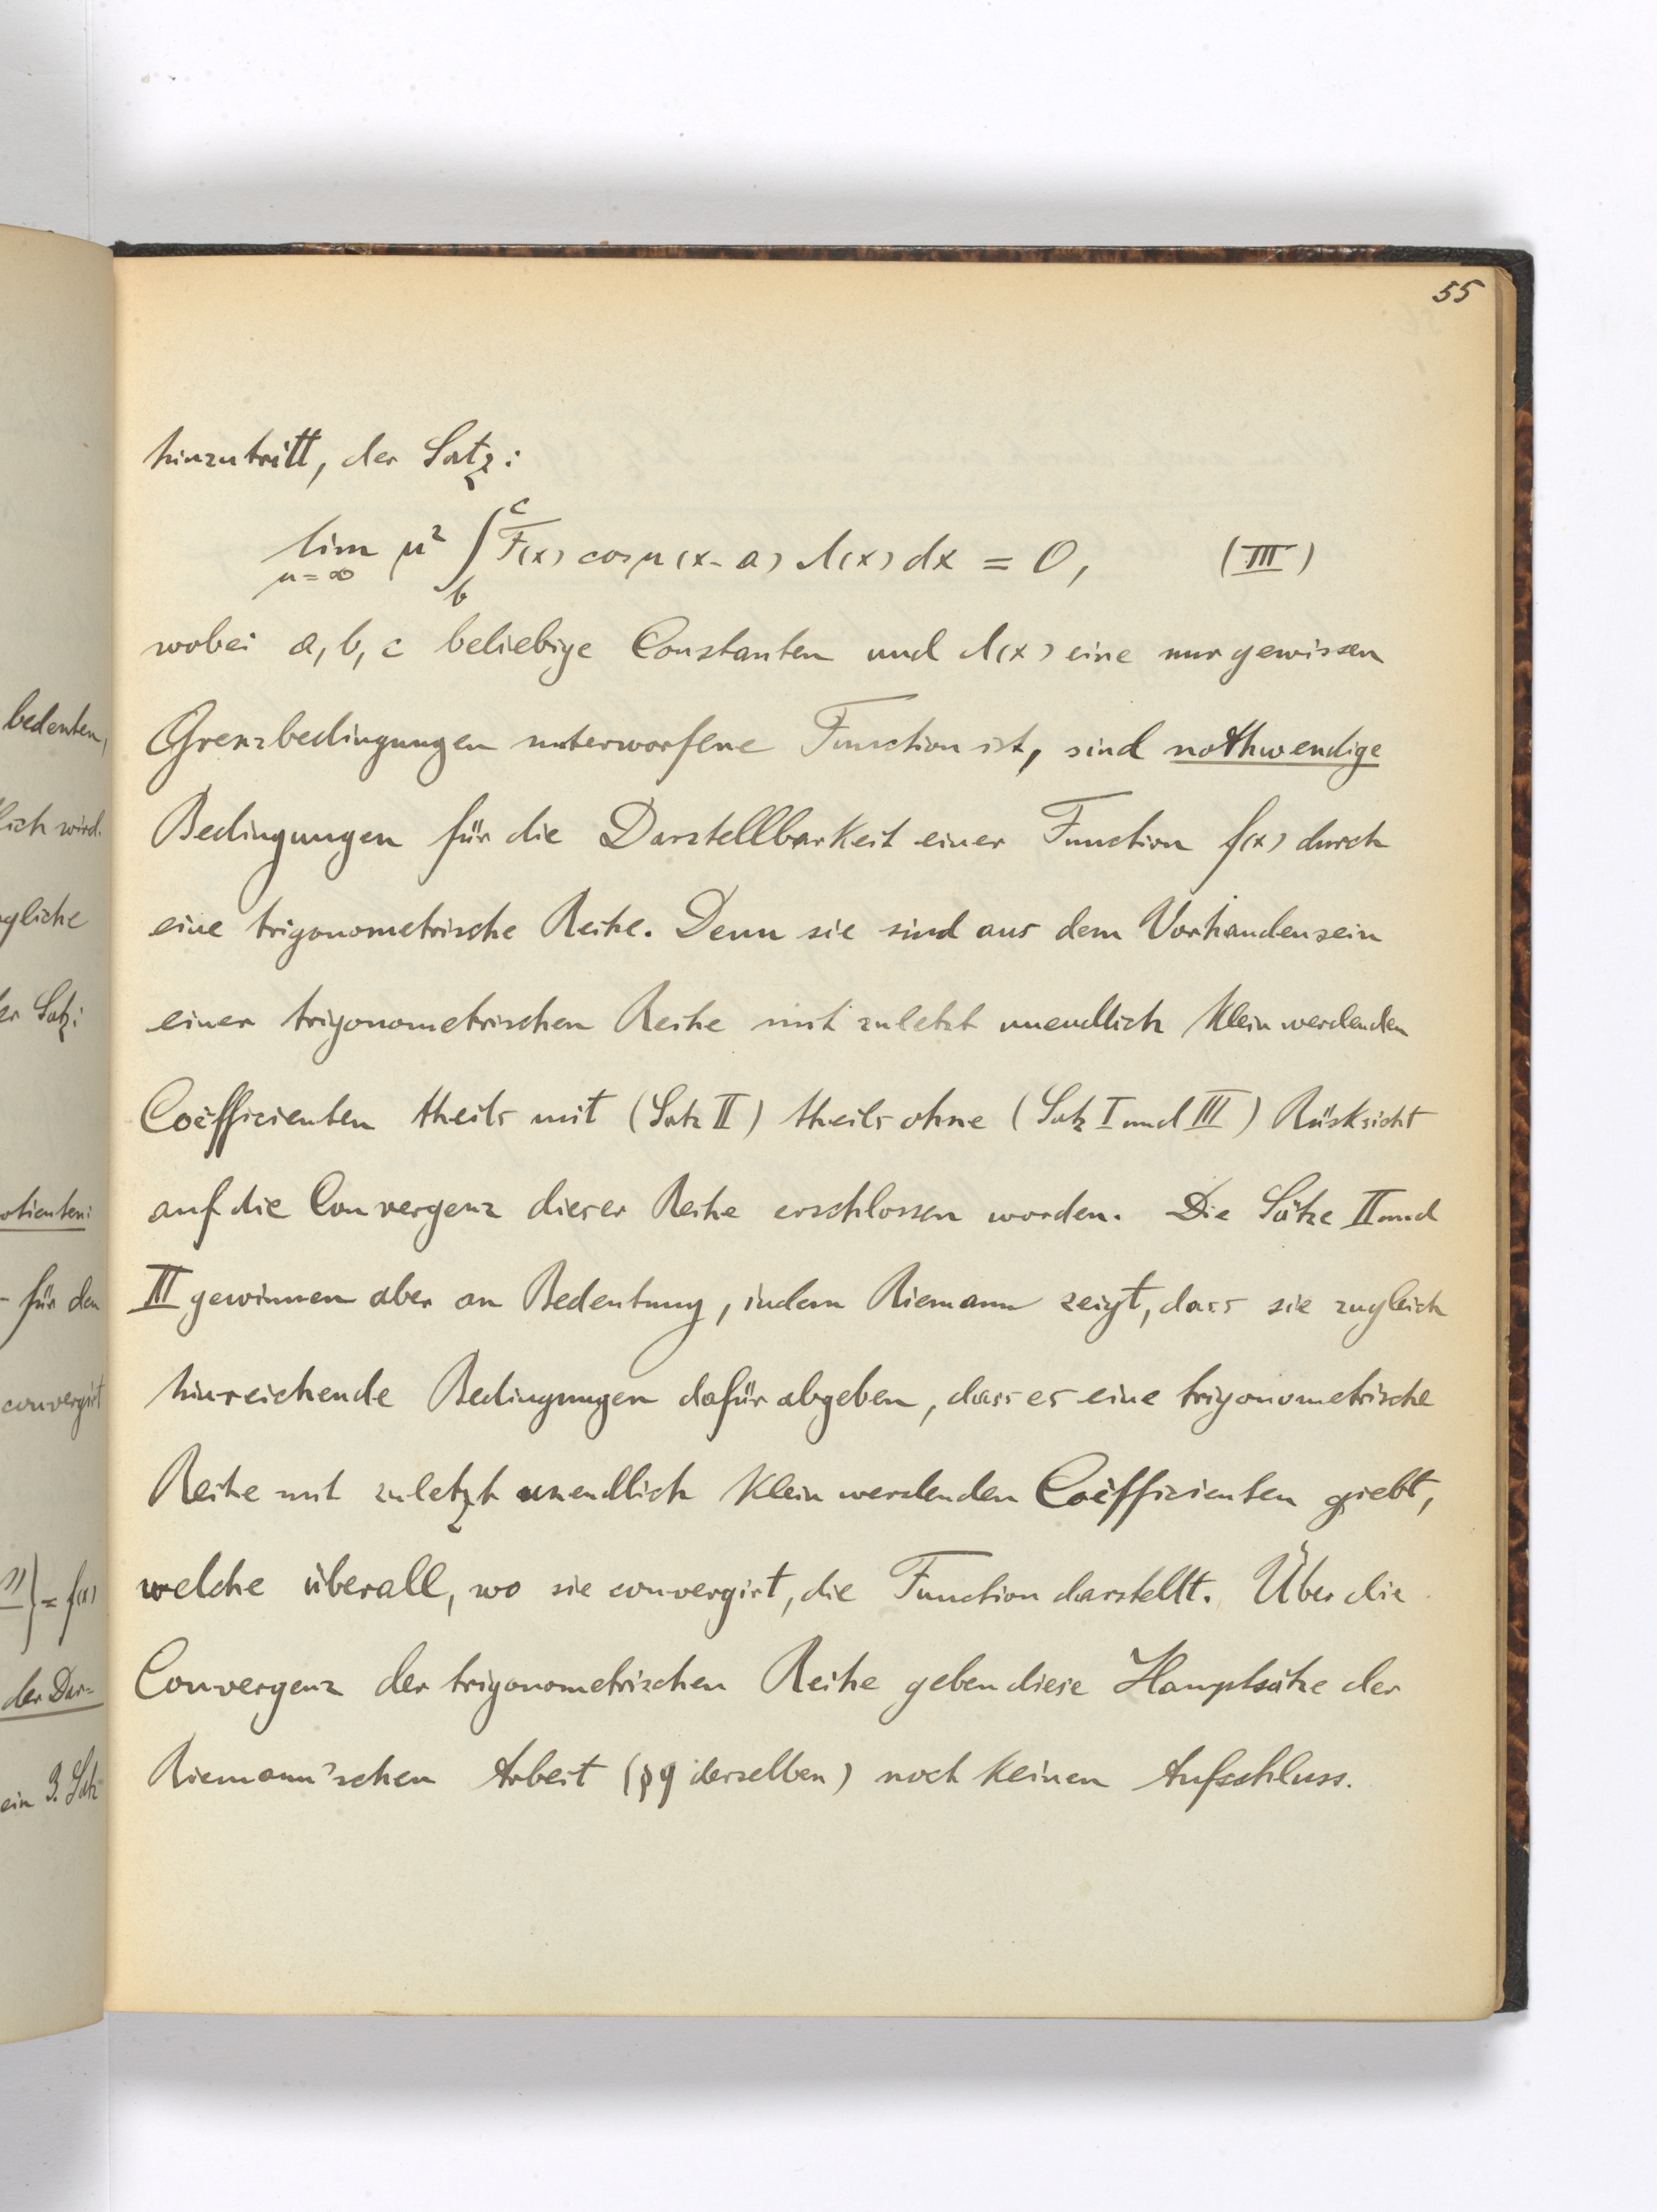 bedeuten,
lich wird.
gliche
er Satz:
otienten:
- für den
convergirt
} = f(x)
der Dar=
ein 3. Satz
55
hinzutritt, der Satz:
lim μ² ∫ F(x) cos μ (x-a) λ(x) dx = 0, (III)
μ=∞ b c
wobei a, b, c beliebige Constanten und λ(x) eine nur gewissen
Grenzbedingungen unterworfene Function ist, sind nothwendige
Bedingungen für die Darstellbarkeit einer Function f(x) durch
eine trigonometrische Reihe. Denn sie sind aus dem Vorhandensein
einer trigonometrischen Reihe mit zuletzt unendlich klein werdenden
Coëfficienten theils mit (Satz II) theils ohne (Satz I und III) Rücksicht
auf die Convergenz dieser Reihe erschlossen worden. Die Sätze II und
III gewinnen aber an Bedeutung, indem Riemann zeigt, dass sie zugleich
hinreichende Bedingungen dafür abgeben, dass es eine trigonometrische
Reihe mit zuletzt unendlich klein werdenden Coëfficienten giebt,
welche überall, wo sie convergirt, die Function darstellt. Über die
Convergenz der trigonometrischen Reihe geben diese Hauptsätze der
Riemann'schen Arbeit (§9 derselben) noch keinen Aufschluss.